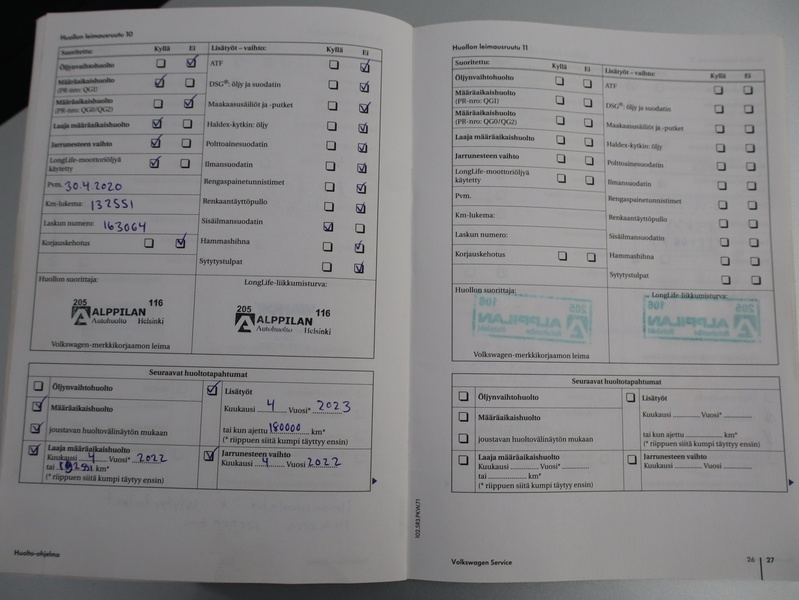 Huollon leimausruutu 10
Suoritettu: Kyllä Ei
Öljynvaihtohuolto
Määräaikaishuolto
(PR-nro: QG1)
Määräaikaishuolto
(PR-nro: QG0/QG2)
Laaja määräaikaishuolto
Jarrunesteen vaihto
LongLife-moottoriöljyä
käytetty
Pvm. 30.4.2020
Km-lukema: 132551
Laskun numero: 163064
Korjauskehotus
Lisätyöt – vaihto: Kyllä Ei
ATF
DSG®: öljy ja suodatin
Maakaasusäiliöt ja -putket
Haldex-kytkin: öljy
Polttoainesuodatin
Ilmansuodatin
Rengaspainetunnistimet
Renkaantäyttöpullo
Sisäilmansuodatin
Hammashihna
Sytytystulpat
Huollon suorittaja:
205 116
ALPPILAN
Autohuolto Helsinki
Volkswagen-merkkikorjaamon leima
LongLife-liikkumisturva:
205 116
ALPPILAN
Autohuolto Helsinki
Seuraavat huoltotapahtumat
Öljynvaihtohuolto
Määräaikaishuolto
joustavan huoltovälinäytön mukaan
Laaja määräaikaishuolto
Kuukausi 4 Vuosi* 2022
tai km*
(* riippuen siitä kumpi täyttyy ensin)
Lisätyöt
Kuukausi 4 Vuosi* 2023
tai kun ajettu 180000 km*
(* riippuen siitä kumpi täyttyy ensin)
Jarrunesteen vaihto
Kuukausi 4 Vuosi 2022
Huolto-ohjelma
102.5R3.PKW.71
Huollon leimausruutu 11
Suoritettu: Kyllä Ei
Öljynvaihtohuolto
Määräaikaishuolto
(PR-nro: QG1)
Määräaikaishuolto
(PR-nro: QG0/QG2)
Laaja määräaikaishuolto
Jarrunesteen vaihto
LongLife-moottoriöljyä
käytetty
Pvm.
Km-lukema:
Laskun numero:
Korjauskehotus
Lisätyöt – vaihto: Kyllä Ei
ATF
DSG®: öljy ja suodatin
Maakaasusäiliöt ja -putket
Haldex-kytkin: öljy
Polttoainesuodatin
Ilmansuodatin
Rengaspainetunnistimet
Renkaantäyttöpullo
Sisäilmansuodatin
Hammashihna
Sytytystulpat
Huollon suorittaja:
ALPPILAN
Volkswagen-merkkikorjaamon leima
LongLife-liikkumisturva:
ALPPILAN
Seuraavat huoltotapahtumat
Öljynvaihtohuolto
Määräaikaishuolto
joustavan huoltovälinäytön mukaan
Laaja määräaikaishuolto
Kuukausi Vuosi*
tai km*
(* riippuen siitä kumpi täyttyy ensin)
Lisätyöt
Kuukausi Vuosi*
tai kun ajettu km*
(* riippuen siitä kumpi täyttyy ensin)
Jarrunesteen vaihto
Kuukausi Vuosi
Volkswagen Service
26 27